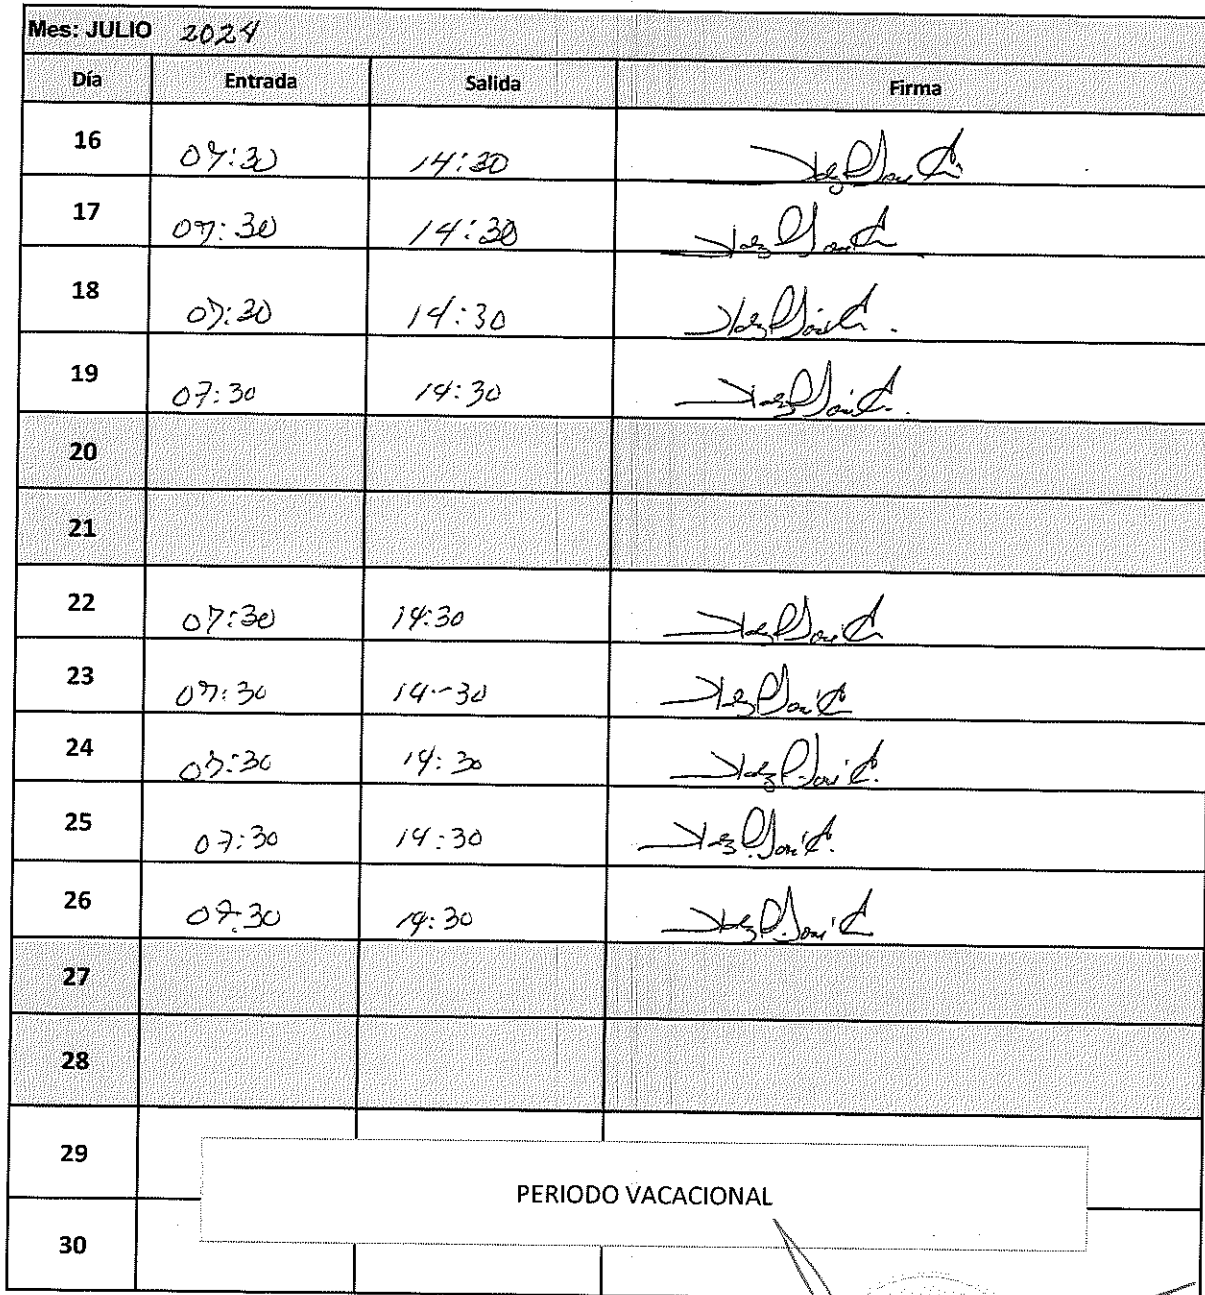 Mes: JULIO 2024
Día Entrada Salida Firma
16 07:30 14:30
17 07:30 14:30
18 07:30 14:30
19 07:30 14:30
20
21
22 07:30 14:30
23 07:30 14:30
24 07:30 14:30
25 07:30 14:30
26 07:30 14:30
27
28
29
PERIODO VACACIONAL
30